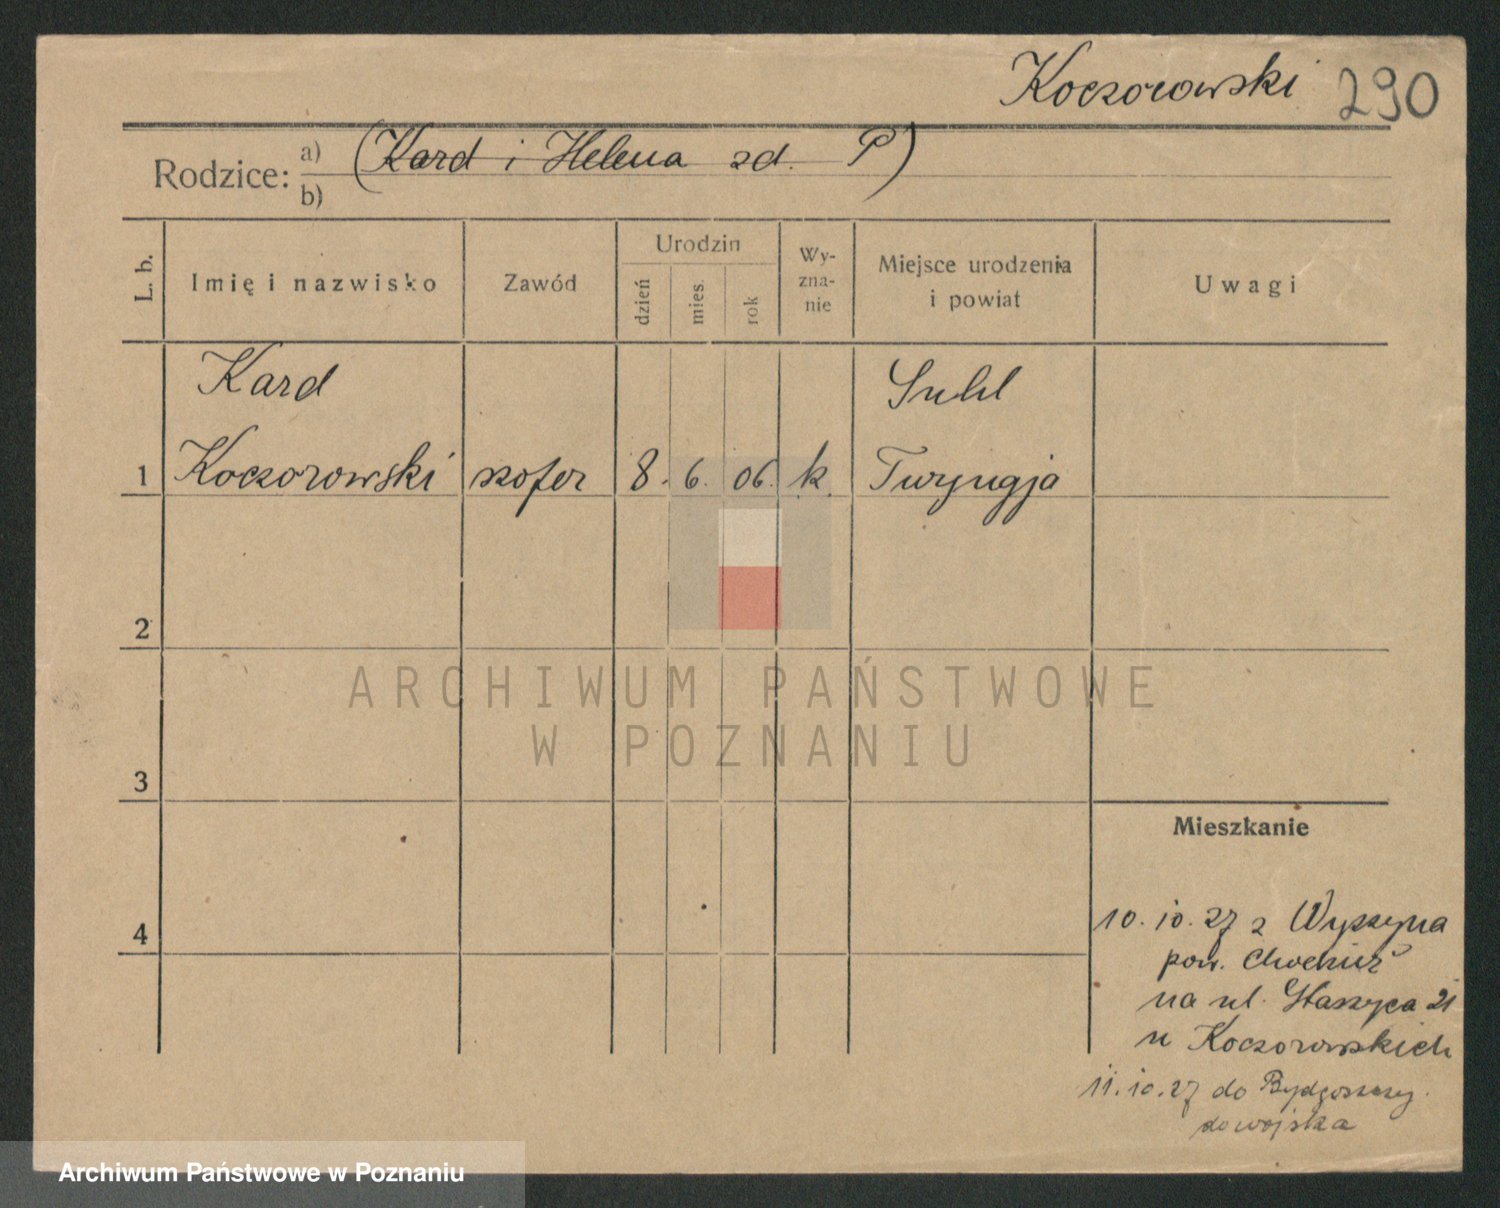 Koczorowski 290
Rodzice: a) (Kard i Helena zd. P)
b)
L. b.
Imię i nazwisko
Zawód
Urodzin
dzień
mies.
rok
Wy-
zna-
nie
Miejsce urodzenia
i powiat
Uwagi
Kard
Suhl
1 Koczorowski szofer 8. 6. 06. k. Turyngja
2
3
4
ARCHIWUM PAŃSTWOWE
W POZNANIU
Mieszkanie
10.10.27 z Wyszyna
pow. Chodzież
na ul. Staszyca 21
u Koczorowskich
11.10.27 do Bydgoszczy
do wojska
Archiwum Państwowe w Poznaniu